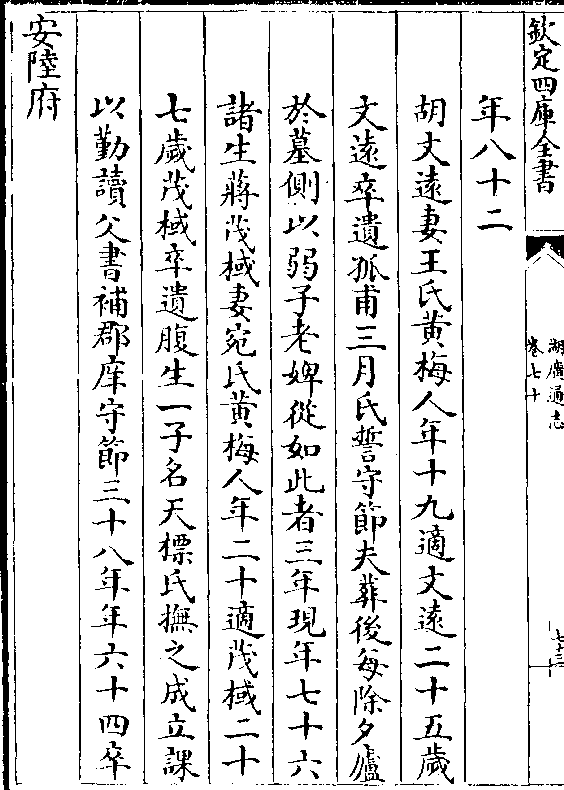 欽定四庫全書
湖廣通志
卷七十
七十三
年八十二
胡文遠妻王氏黄梅人年十九適文遠二十五歲
文遠卒遺孤甫三月氏誓守節夫葬後每除夕廬
於墓側以弱子老婢從如此者三年現年七十六
諸生蔣茂棫妻宛氏黄梅人年二十適茂棫二十
七歲茂棫卒遺腹生一子名天標氏撫之成立課
以勤讀父書補郡庠守節三十八年年六十四卒
安陸府